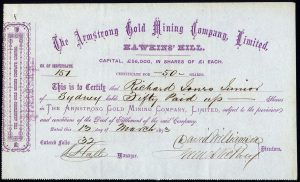 The Armstrong Gold Mining Company, Limited.
HAWKINS' HILL.
CAPITAL, £56,000, IN SHARES OF £1 EACH.
NO. OF CERTIFICATE
151
CERTIFICATE FOR 50 SHARES
This is to Certify that Richard Jones Junior
of Sydney holds Fifty Paid up Shares
in THE ARMSTRONG GOLD MINING COMPANY, LIMITED, subject to the provisions
and conditions of the Deed of Settlement of the said Company.
Dated this 13 March 1873
Entered Folio 32
Manager.
Directors.